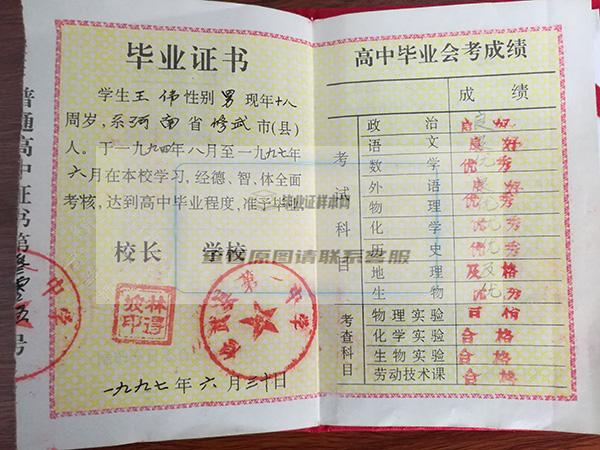 毕业证书
学生王伟性别男现年十八
周岁,系河南省修武市(县)
人。于一九九四年八月至一九九七年
六月在本校学习,经德、智、体全面
考核,达到高中毕业程度,准予毕业
校长 学校
修武县第一中学
一九九七年六月三十日
普通高中证书第
号
中学
高中毕业会考成绩
成绩
考试科目
政治 良好
语文 良好
数学 优秀
外语 良好
物理 优秀
化学 优秀
历史 优秀
地理 及格
生物 优秀
考查科目
物理实验 合格
化学实验 合格
生物实验 合格
劳动技术课 合格
毕业证样本网
原图请联系客服